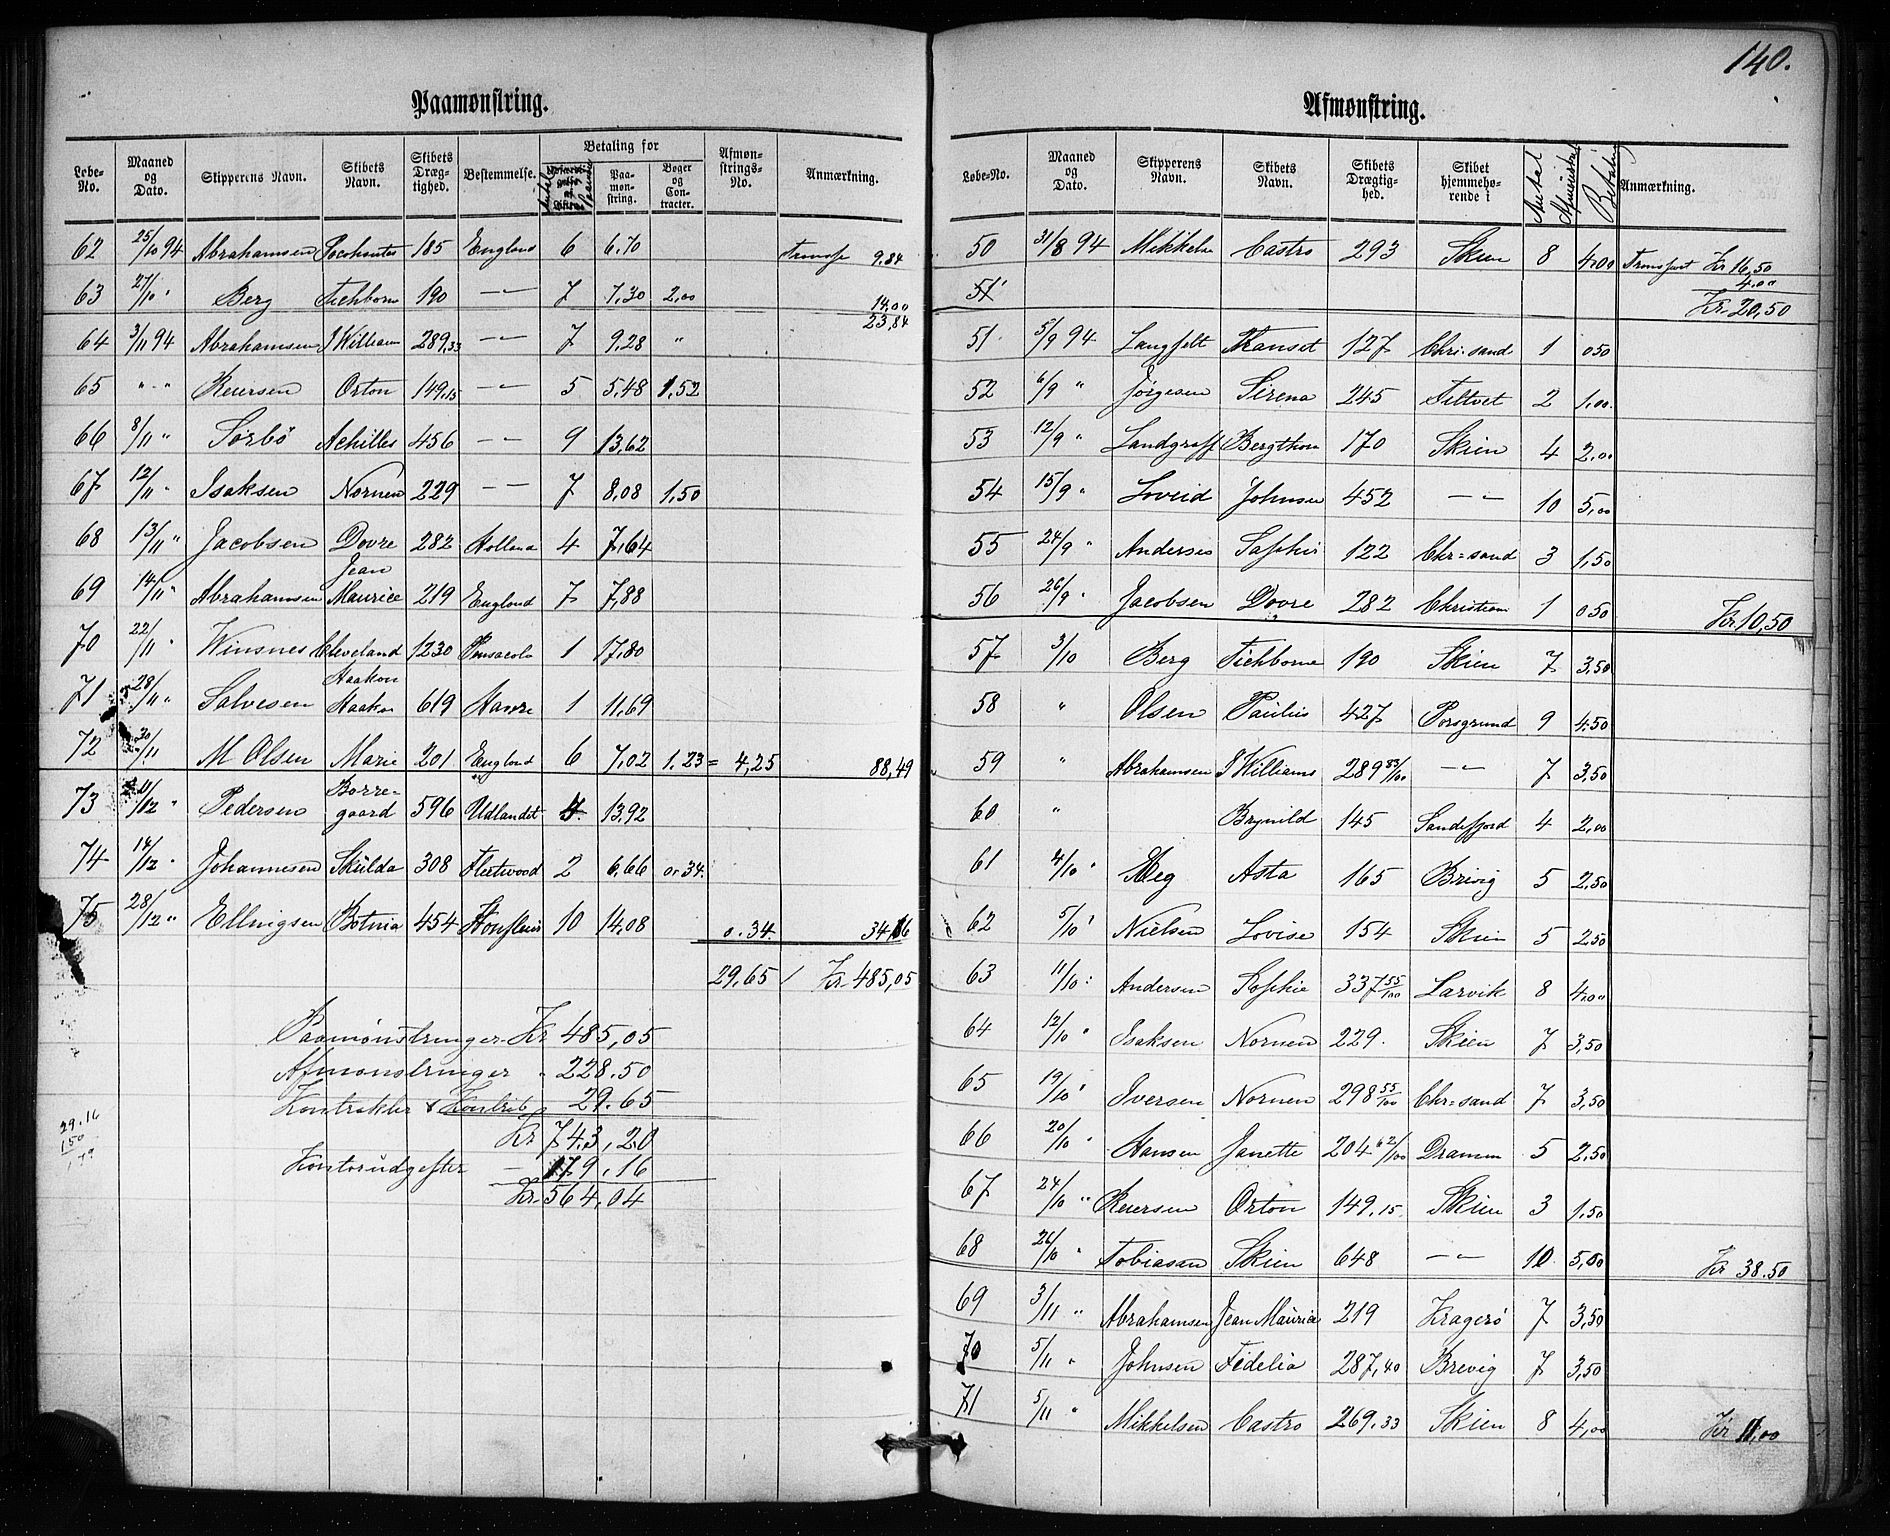 140.
Paamønstring.
Løbe-No. Maaned og Dato. Skipperens Navn. Skibets Navn. Skibets Drægtighed. Bestemmelse. Betaling for Paamønstring. Bøger og Contracter. Afmønstrings-No. Anmærkning.
62 25/10 94 Abrahamsen Pocahontas 185 England 6 6,70 Transp 9.84
63 27/10 " Berg Tichborne 190 —"— 7 7,30 2,00 14,00
23,84
64 3/11 94 Abrahamsen J William 289,33 —"— 7 9,28 "
65 " - " Reiersen Orton 149,15 —"— 5 5,48 1,52
66 8/11 " Sørbö Achilles 456 —"— 9 13,62
67 12/11 " Isaksen Nornen 229 —"— 7 8,08 1,50
68 13/11 " Jacobsen Dovre 282 Holland 4 7,64
69 14/11 " Abrahamsen Jean Maurice 219 England 7 7,88
70 22/11 " Winsnes Cleveland 1230 Pensacola 1 17,80
71 28/11 " Salvesen Haakon Haakon 619 Havre 1 11,69
72 30/11 M Olsen Marie 201 England 6 7,02 1.23 = 4,25 88,49
73 11/12 " Pedersen Borregaard 596 Udlandet 4. 13,92
74 14/12 " Johannesen Skulda 308 Fleetwood 2 6,66 0.34.
75 28/12 " Ellingsen Botnia 454 Honfleur 10 14,08 0.34. 34,16
29,65 / Kr 485,05
Paamønstringer Kr 485,05
Afmønstringer " 228.50
Kontrakter & 29.65
Kr 743,20
Kontorudgifter — 179.16
Kr. 564.04
29.16
150
179
Afmønstring.
Løbe-No. Maaned og Dato. Skipperens Navn. Skibets Navn. Skibets Drægtighed. Skibet hjemmehørende i Antal Afmønstrede Betaling Anmærkning.
50 31/8 94 Mikkelsen Castro 293 Skien 8 4,00 Transport Kr 16,50
4,00
51 Kr. 20,50
51 5/9 94 Langfelt 127 Chr.sand 1 0 50
52 6/9 " Jörgesen Sirena 245 Filtvet 2 1,00
53 12/9 " Landgraff Bergthora 170 Skien 4 2,00
54 15/9 " Lovrid Johnsen 452 —"— 10 5,00
55 24/9 " Andersen Saphir 122 Chr=sand 3 1,50
56 26/9 " Jacobsen Dovre 282 Christiania 1 0 50 Kr 10,50
57 3/10 Berg Tichborne 190 Skien 7 3,50
58 " Olsen Paulus 427 Porsgrund 9 4.50
59 " Abrahamsen J Williams 289 83/100 —"— 7 3,50
60 " Brynild 145 Sandefjord 4 2,00
61 4/10 " Meg Asta 165 Brevig 5 2,50
62 5/10 " Nielsen Lovise 154 Skien 5 2,50
63 11/10 : Andersen Sophie 337 55/100 Larvik 8 4,00
64 12/10 " Isaksen Nornen 229. Skien 7 3,50
65 19/10 " Iversen Nornen 298 55/100 Chr=sand 7 3,50
66 20/10 " Hansen Janette 204 62/100 Drammen 5 2,50
67 24/10 " Reiersen Orton 149.15 Skien 3 1,50
68 26/10 " Tobiasen Skien 648 —"— 10 5,00 Kr 38.50
69 3/11 " Abrahamsen Jean Maurice 219 Kragerö 7 3,50
70 5/11 " Johnsen Fidelia 287,40 Brevig 7 3,50
71 5/11 " Mikkelsen Castro 269.33 Skien 8 4,00 Kr 11,00